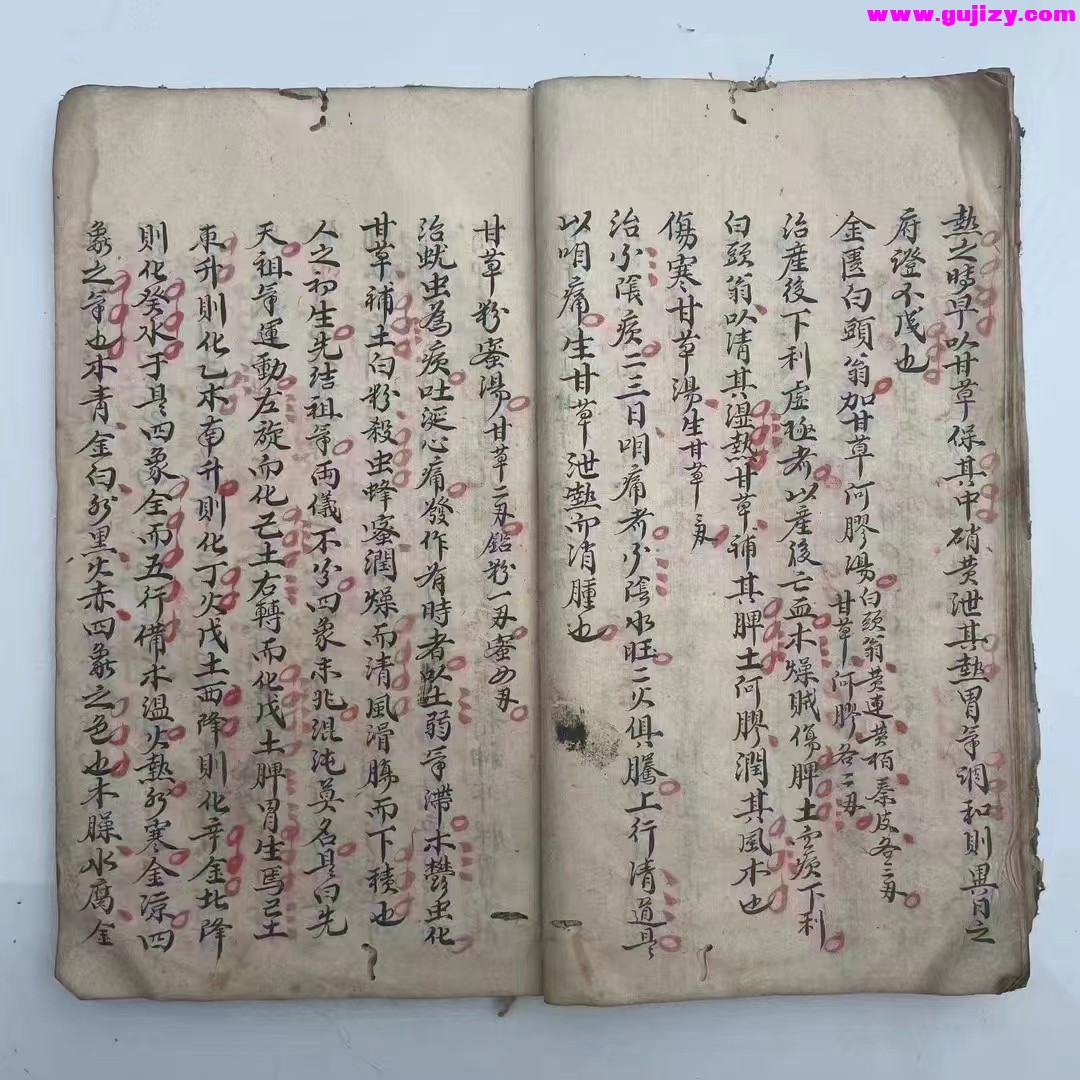 www.gujizy.com
熱之時早以甘草保其中硝黄泄其熱胃气調和則異日之
府證不成也
金匱白頭翁加甘草阿膠湯白頭翁黄連黄栢秦皮各三两
甘草阿膠各二两
治産後下利虚極者以産後亡血木燥賊傷脾土而病下利
白頭翁以清其湿熱甘草補其脾土阿膠潤其風木也
傷寒甘草湯生甘草二两
治少陰病二三日咽痛者少陰水旺二火俱騰上行清道是
以咽痛生甘草泄熱而消腫也
甘草粉蜜湯甘草二两鉛粉一两蜜四两
治蚘虫為病吐涎心痛發作有時者以土弱气滯木鬱虫化
甘草補土白粉殺虫蜂蜜潤燥而清風滑腸而下積也
人之初生先結祖气兩儀不分四象未兆混沌莫名是曰先
天祖气運動左旋而化己土右轉而化戊土脾胃生焉己土
東升則化乙木南升則化丁火戊土西降則化辛金北降
則化癸水于是四象全而五行備木温火熱水寒金涼四
象之气也木青金白水黑火赤四象之色也木臊水腐金